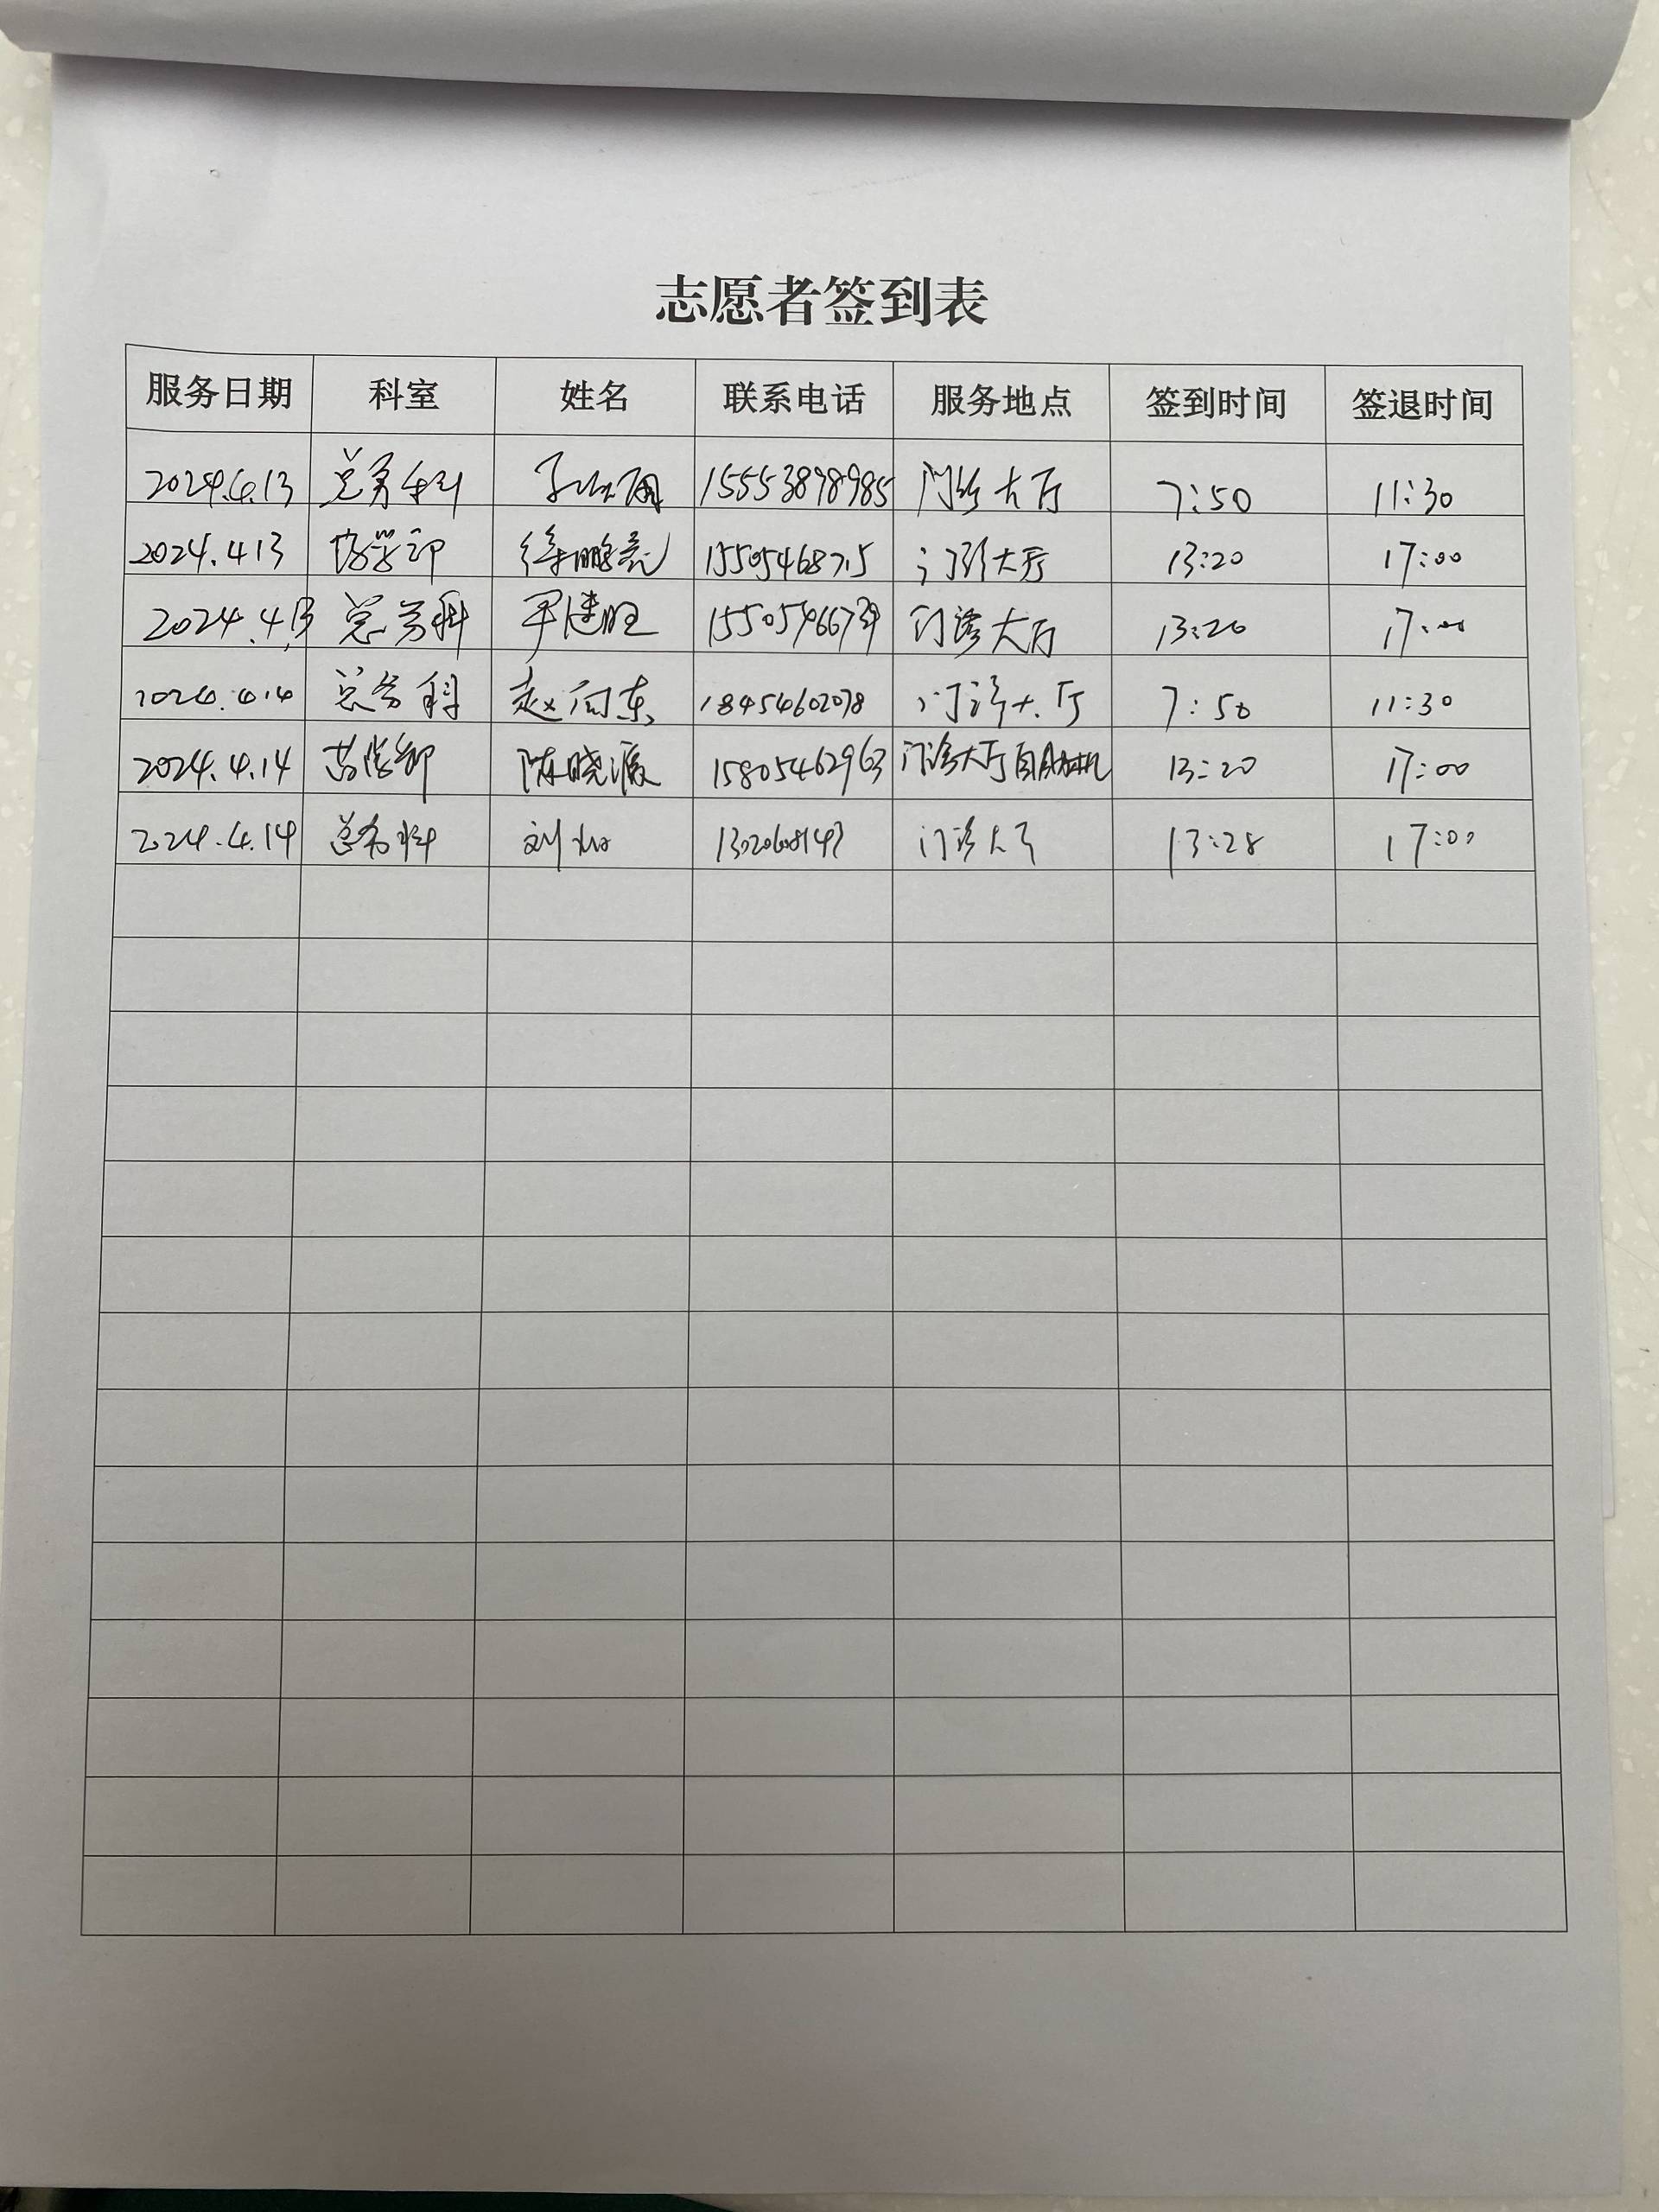 志愿者签到表
服务日期 科室 姓名 联系电话 服务地点 签到时间 签退时间
2024.4.13 总务科 15553898985 门诊大厅 7:50 11:30
2024.4.13 药学部 徐鹏亮 门诊大厅 13:20 17:00
2024.4.13 总务科 尹建旺 门诊大厅 13:20 17:00
2024.4.14 总务科 赵向东 18454602078 门诊大厅 7:50 11:30
2024.4.14 药学部 陈晓源 15805462963 门诊大厅自助机 13:20 17:00
2024.4.14 总务科 刘 门诊大厅 13:28 17:00